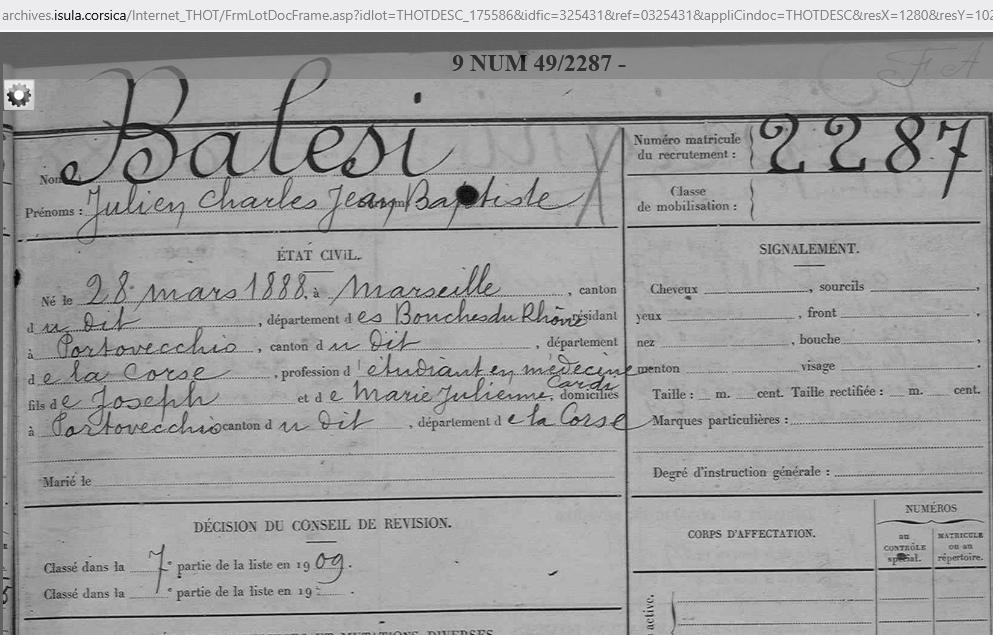 archives.isula.corsica/Internet_THOT/FrmLotDocFrame.asp?idlot=THOTDESC_175586&idfic=325431&ref=0325431&appliCindoc=THOTDESC&resX=1280&resY=102
9 NUM 49/2287 -
FA
Nom: Balesi
Prénoms : Julien Charles Jean Baptiste
Numéro matricule
du recrutement : 2287
Classe
de mobilisation :
ÉTAT CIVIL.
Né le 28 mars 1888, à Marseille, canton
du dit, département des Bouches du Rhône, résidant
à Portovecchio, canton du dit, département
de la Corse, profession d'étudiant en médecine
fils de Joseph et de Marie Julienne Cardi, domiciliés
à Portovecchio canton du dit, département de la Corse
Marié le
SIGNALEMENT.
Cheveux , sourcils ,
yeux , front ,
nez , bouche ,
menton visage .
Taille : m. cent. Taille rectifiée : m. cent.
Marques particulières :
Degré d'instruction générale :
DÉCISION DU CONSEIL DE REVISION.
Classé dans la 7e partie de la liste en 1909.
Classé dans la e partie de la liste en 19 .
CORPS D'AFFECTATION.
NUMÉROS
au
CONTRÔLE
spécial.
MATRICULE
ou au
répertoire.
active.
ET MUTATIONS DIVERSES